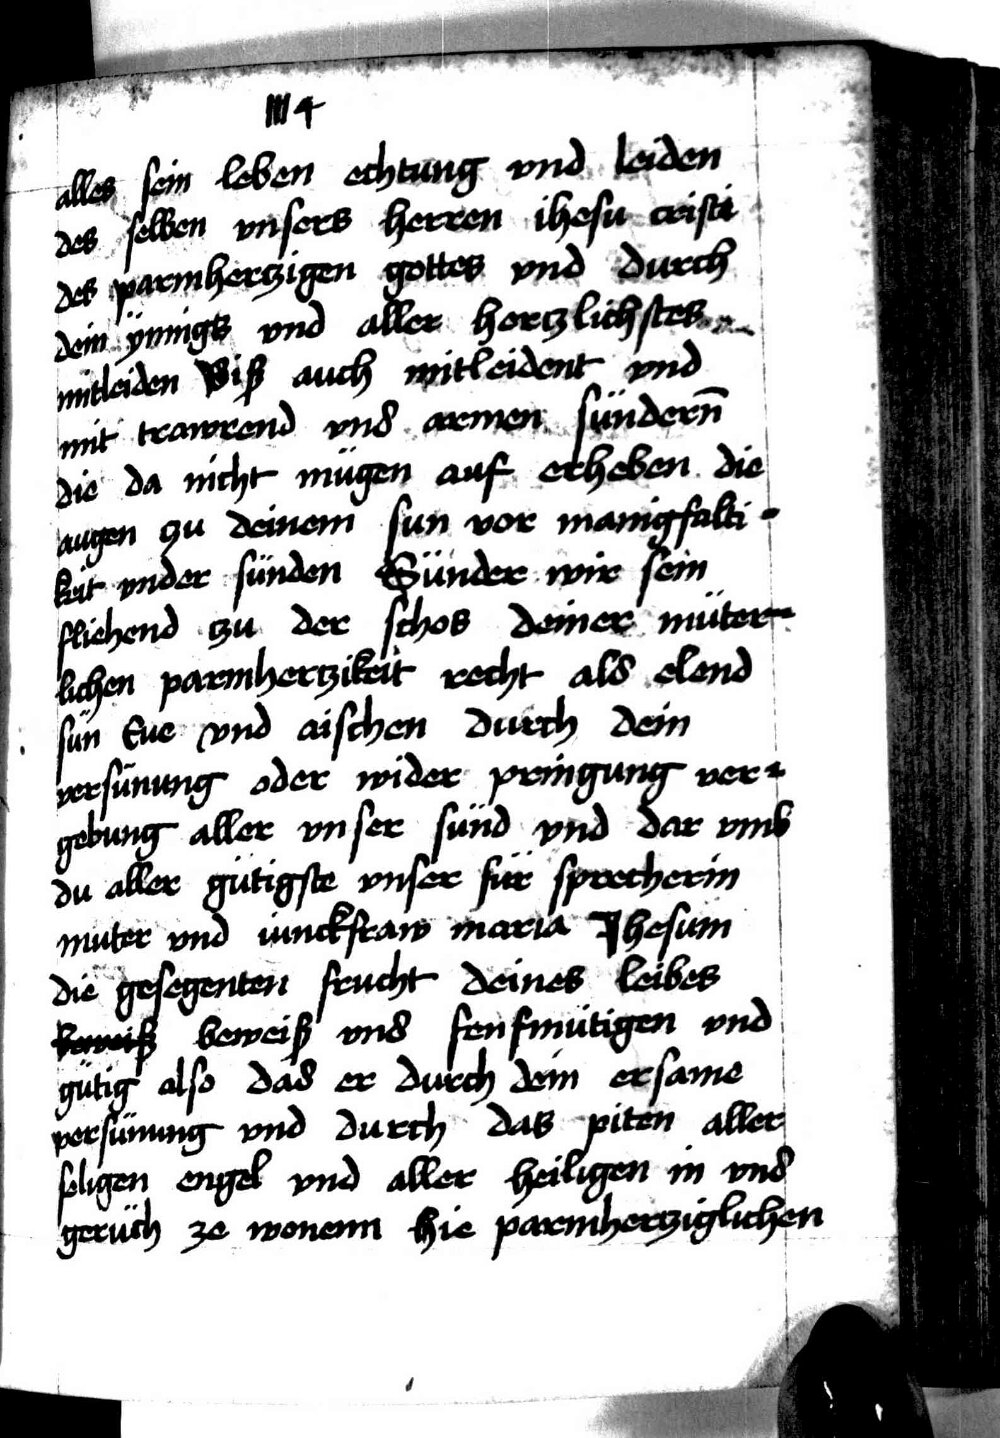 IIII 4
alles sein leben echtung vnd leiden
des selben vnsers herren ihesu cristi
des parmhertzigen gottes vnd durch
dein ÿnnigs vnd aller hertzlichstes
mitleiden Biß auch mitleident vnd
mit trawrend vns armen sündern̄
die da nicht mügen auf erheben die
augen zu deinem sun vor manigfalti-
keit vnder sünden Sünder wir sein
fliehend zu der schos deiner müter-
lichen parmhertzikeit recht als elend
sün Eue vnd aischen durch dein
versünung oder wider pringung ver-
gebung aller vnser sünd vnd dar vmb
du aller gütigste vnser für sprecherin
muter vnd iunckfraw maria Jhesum
die gesegenten frucht deines leibes
beweiß beweiß vns senfmütigen vnd
gütig also das er durch dein ersame
versünung vnd durch das piten aller
seligen engel vnd aller heiligen in vns
gerüch ze wonenn hie parmhertziglichen